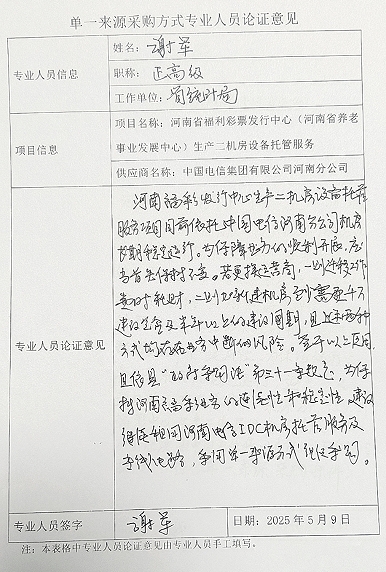 单一来源采购方式专业人员论证意见
姓名：谢军
专业人员信息
职称：正高级
工作单位：省统计局
项目信息
项目名称：河南省福利彩票发行中心（河南省养老
事业发展中心）生产二机房设备托管服务
供应商名称：中国电信集团有限公司河南分公司
专业人员论证意见
河南福彩发行中心生产二机房设备托管
服务项目目前依托中国电信河南分公司机房
长期稳定运行。为保障业务的顺利开展，应
当首先保持不变。若更换运营商，一则迁移工作
费时耗财，二则又新建机房至少需要千万
建设资金及半年以上的建设周期，且上述两种
方式均存在业务中断的风险。基于以上原因
且依县"政府采购法"第三十一条规定，为保
持河南福彩业务的连续性和稳定性，建议
继续租用河南电信IDC机房托管服务及
专线电路，采用单一来源方式依法采购。
专业人员签字
谢军
日期：2025年5月9日
注：本表格中专业人员论证意见由专业人员手工填写。